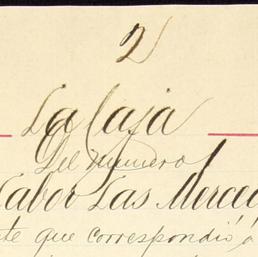 2
La Caja
Del Número
Labor Las Merced
te que correspondió á